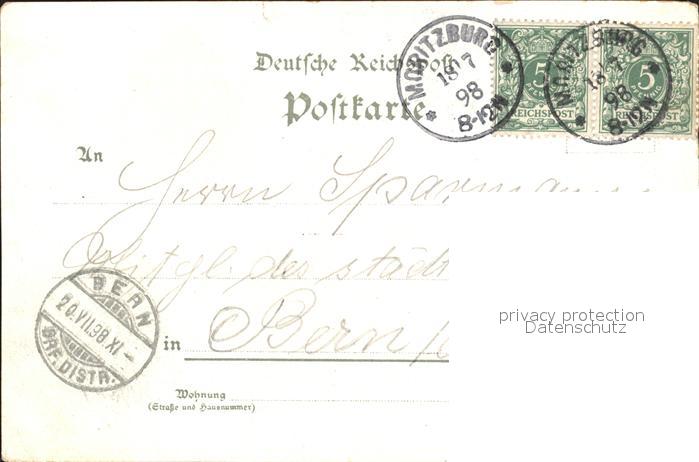 Deutsche Reichspost
Postkarte
MORITZBURG
18 7
98
8-12N
5
REICHSPOST
MORITZBURG
18 7
98
8-12N
5
REICHSPOST
An
Herrn Sparmann
Mitgl. des städt
in Bern
BERN
20.VII.98.XI-
BRF.DISTR.
Wohnung
(Straße und Hausnummer)
privacy protection
Datenschutz